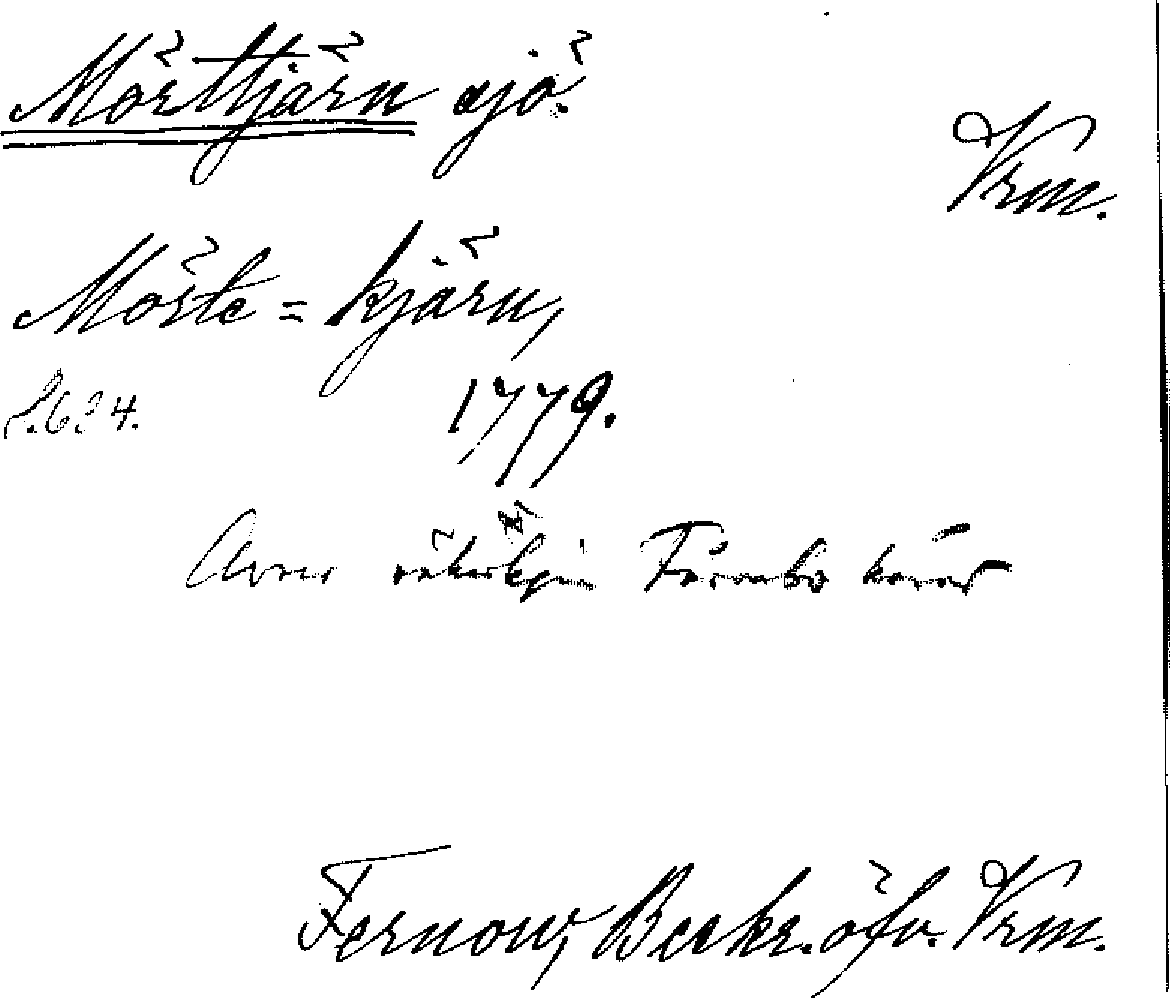 Mörttjärn sjö.
Vrm.
Möste = kjärn,
S. 624. 1779.
Avser
Fernow, Beskr. öfv. Vrm.